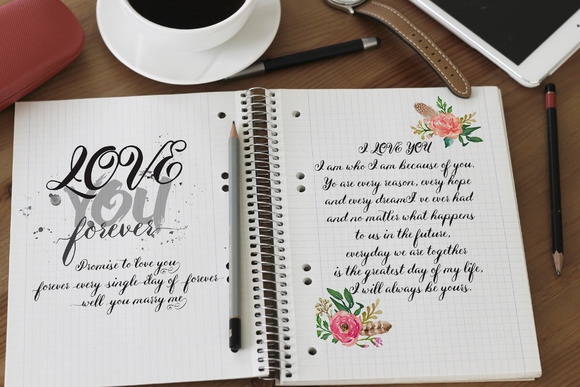 LOVE
You
forever
Promise to love you
forever every single day of forever
well you marry me
I LOVE YOU
I am who I am because of you.
Yo are every reason, every hope
and every dream I've ever had
and no matter what happens
to us in the future,
everyday we are together
is the greatest day of my life.
I will always be yours.